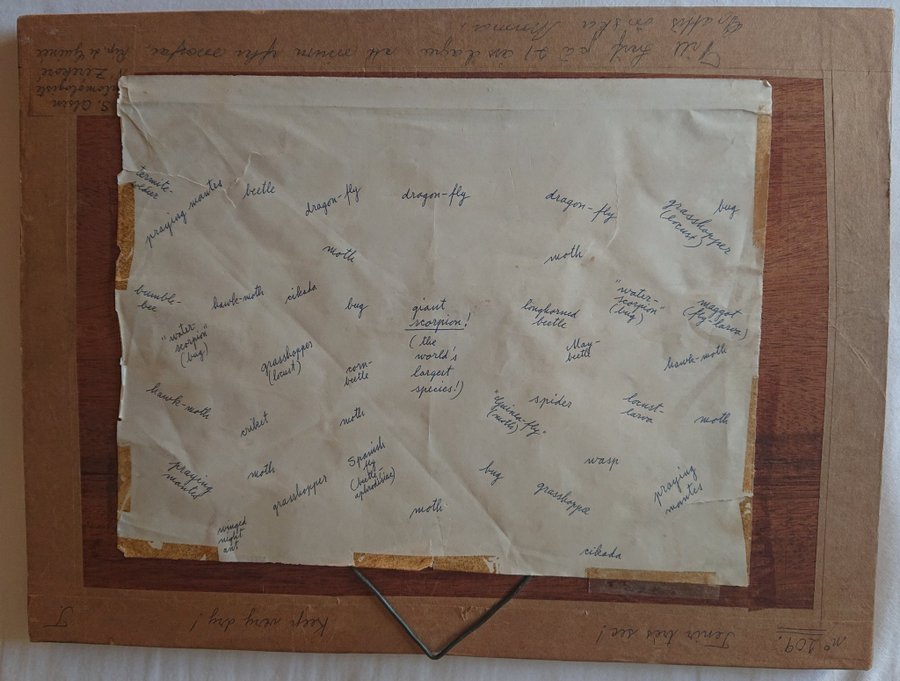 S. Olsen
Zerekoré
Rep. de Guinée
termite-
soldier
praying mantes
beetle
dragon-fly
dragon-fly
dragon-fly
grasshopper
(locust)
bug
moth
moth
bumble-
bee
hawk-moth
cikada
bug
giant
scorpion!
(the
world's
largest
species!)
longhorned
beetle
"water-
scorpion"
(bug)
maggot
(fly-larva)
"water-
scorpion"
(bug)
grasshopper
(locust)
corn-
beetle
May-
beetle
hawk-moth
hawk-moth
criket
moth
"Guinea-fly"
(moth)
spider
locust-
larva
moth
praying
mantes
moth
grasshopper
Spanish
fly
(beetle-
aphrodisiac)
bug
wasp
grasshopper
praying
mantes
winged
night
ant
moth
cikada
nº 209.
Tenir très sec!
Keep very dry!